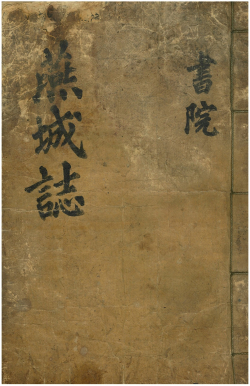 書院
蕪城誌